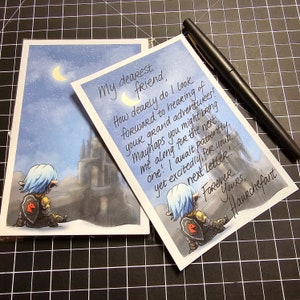 My dearest
friend,
How dearly do I look
forward to hearing of
your grand adventures!
Mayhaps you might bring
me along for the next
one! I await patiently,
yet excitedly, for your
next letter.
Forever
yours,
Haurchefant